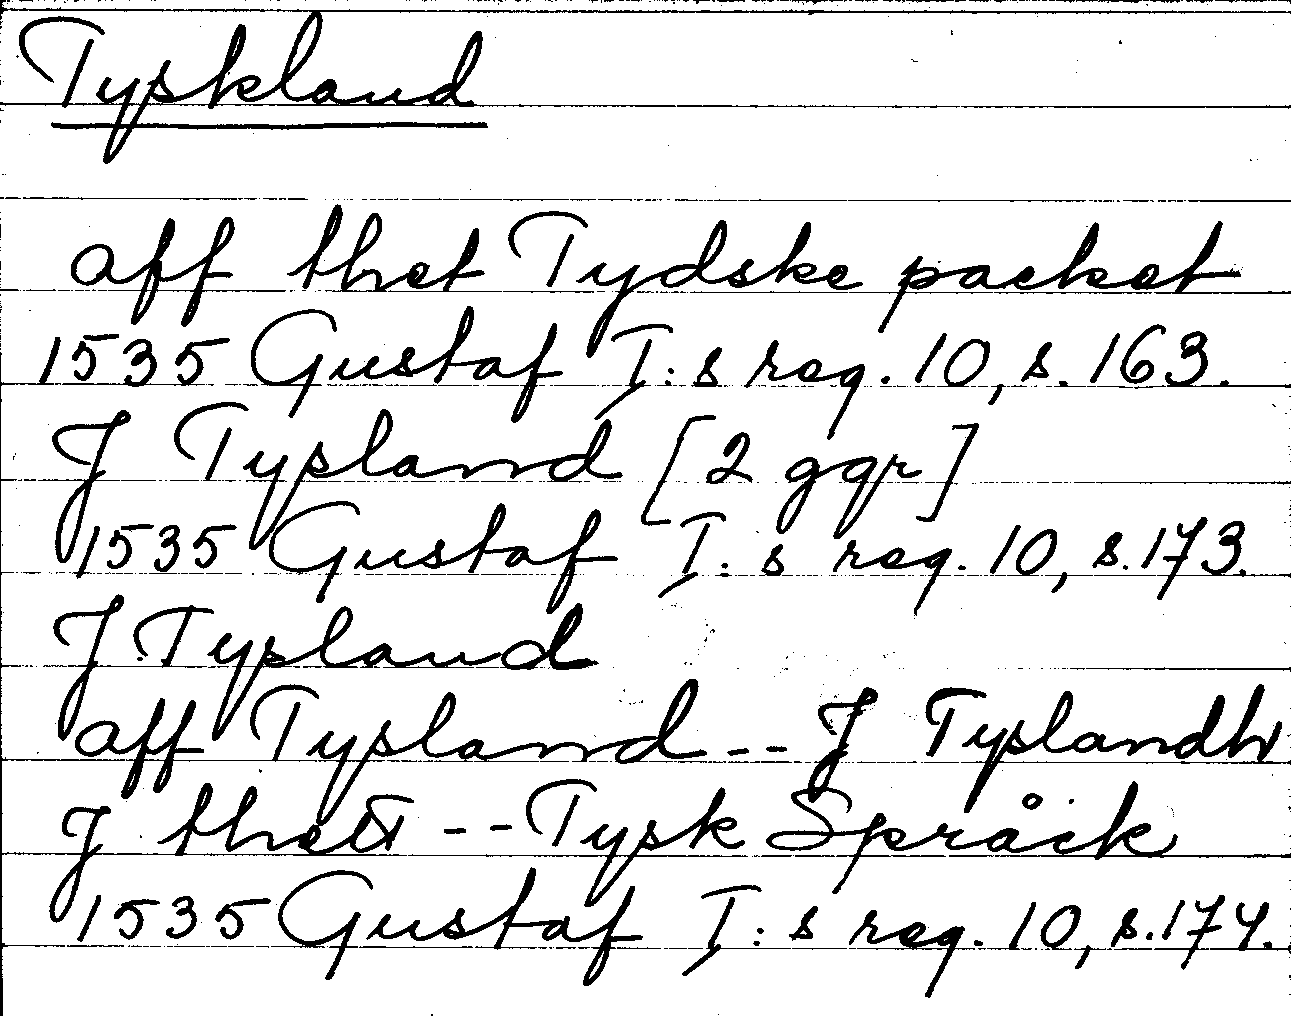 Tyskland
aff thet Tydske packet
1535 Gustaf I:s reg. 10, s. 163.
J Tysland [2 ggr]
1535 Gustaf I:s reg. 10, s. 173.
J Tysland
aff Tysland -- J Tyslandh
J thett -- Tysk Språck
1535 Gustaf I:s reg. 10, s. 174.